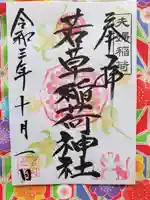 夫婦稲荷
奉拝
若草稲荷神社
令和三年十月一日